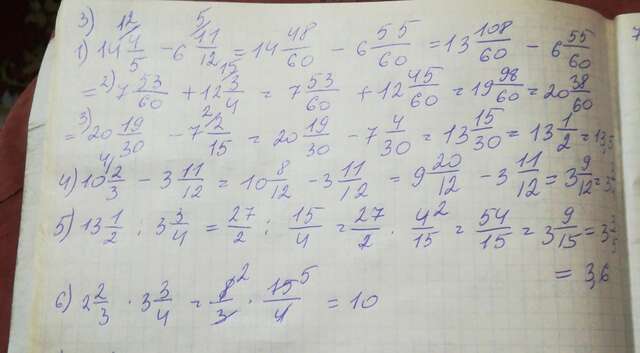 3) 12 5
1) 14 4/5 - 6 11/12 = 14 48/60 - 6 55/60 = 13 108/60 - 6 55/60
= 2) 7 53/60 + 12 3/4 = 7 53/60 + 12 45/60 = 19 98/60 = 20 38/60
15 2
= 3) 20 19/30 - 7 2/15 = 20 19/30 - 7 4/30 = 13 15/30 = 13 1/2 = 13,5
4) 10 2/3 - 3 11/12 = 10 8/12 - 3 11/12 = 9 20/12 - 3 11/12 = 3 9/12 =
5) 13 1/2 : 3 3/4 = 27/2 : 15/4 = 27/2 · 4²/15 = 54/15 = 3 9/15 = 3 3/5
= 3,6
6) 2 2/3 · 3 3/4 = 8²/3 · 15⁵/4 = 10